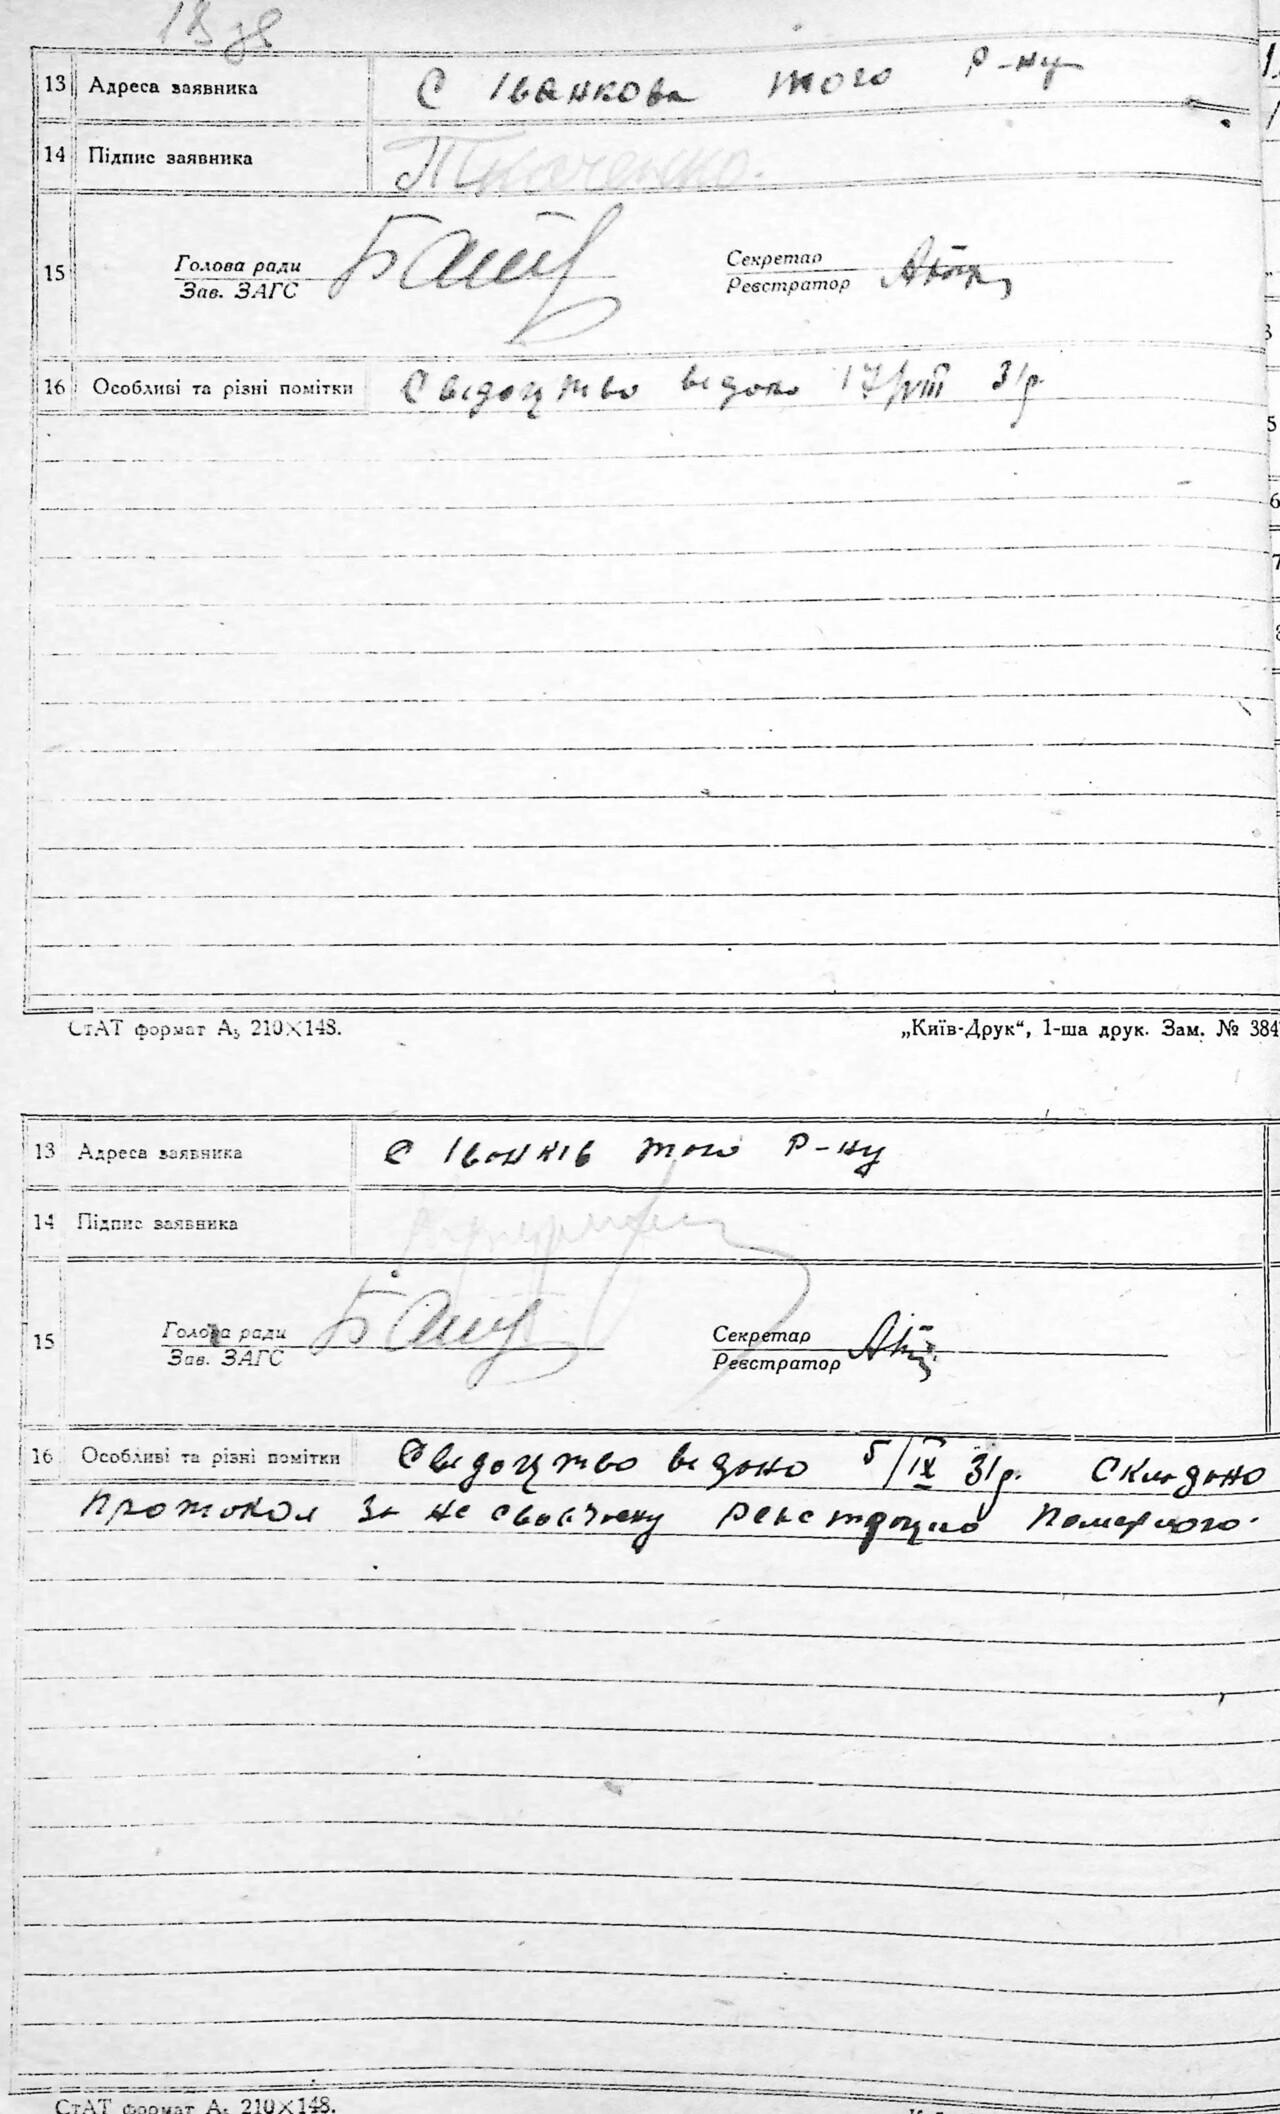 18 зв
13 Адреса заявника С Іванкова того Р-ну
14 Підпис заявника Ткаченко.
15 Голова ради Секретар
Зав. ЗАГС Реєстратор
16 Особливі та різні помітки Свідоцтво видано 17/VIII 31р.
СтАТ формат А₅ 210×148. „Київ-Друк“, 1-ша друк. Зам. № 384
13 Адреса заявника С Іванків того Р-ну
14 Підпис заявника
15 Голова ради Секретар
Зав. ЗАГС Реєстратор
16 Особливі та різні помітки Свідоцтво видано 5/IX 31р. Складено
протокол за не своєчасну реєстрацію померлого.
СтАТ формат А₅ 210×148.